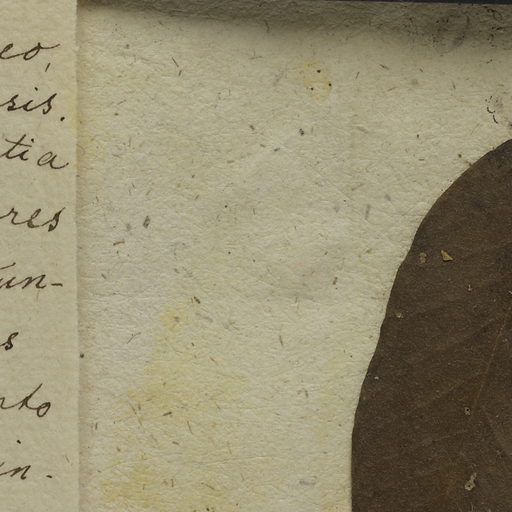 eo,
sis.
tia
res
un-
s
rto
in.